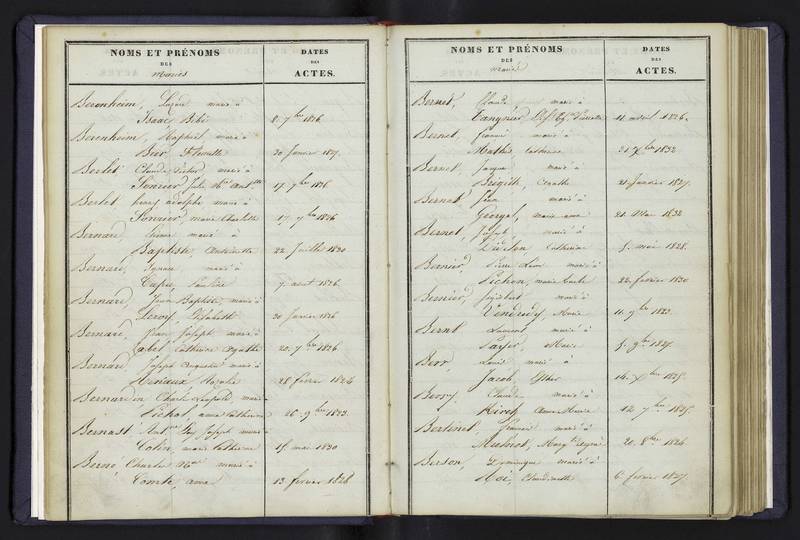 NOMS ET PRÉNOMS
DES
mariés
DATES
DES
ACTES.
Berenheim, Lazare marié à
Isaac Bibi 8. 7bre 1826
Berenheim, Raphaël marié à
Bier 20 Janvier 1827.
Berlet Claude Victor, marié à
Sonrier Julie 17. 7bre 1826
Berlet henry adolphe marié à
Sonrier, marie Charlotte 17. 7bre 1826
Bernard, marié à
Baptiste, Antoinette 22 Juillet 1830
Bernard, Ignace marié à
7. aout 1826.
Bernard, Jean Baptiste, marié à
Leroy, Elisabeth 30 Janvier 1826
Bernard, Jean Joseph marié à
Catherine Agathe 20. 7bre 1826
Bernard, Joseph Auguste marié à
Heniaux Rosalie 28 fevrier 1824
Bernardin Charles Leopold marié à
Pichol, anne Catherine 26. 9bre 1823.
Bernast Joseph marié à
Colin, marie Catherine 15. mai 1830
Berné Charles Nas marié à
Comte, anne 13 fevrier 1828
NOMS ET PRÉNOMS
DES
mariés
DATES
DES
ACTES.
Bernel, Claude, marié à
Tangnier 11 avril 1826.
Bernel, francois marié à
Mathis Catherine 31 Xbre 1832
Bernel, Jacques marié à
Brigitte, 21 Janvier 1827.
Bernel, Jean marié à
Georgel, marie anne 21. Mai 1832
Bernel, Joseph, marié à
Catherine 5. mai 1828.
Bernier, Pierre Léon marié à
Pichon, marie 22. fevrier 1830
Bernier, Sigisbert marié à
Vendredy, Marie 11. 9bre 1823.
Bernt Laurent marié à
Marie 5. 9bre 1827.
Berr, Louis marié à
Jacob, Esther 14. Xbre 1825.
Berry, Claude marié à
Hirch Anne Marie 12. 7bre 1825.
Bertinet, francois marié à
20. 8bre 1826
Berson, Dominique marié à
Noé, Claudinette 6 fevrier 1827.